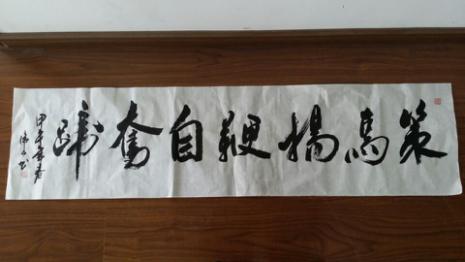 策馬揚鞭自奮蹄
甲午年夏